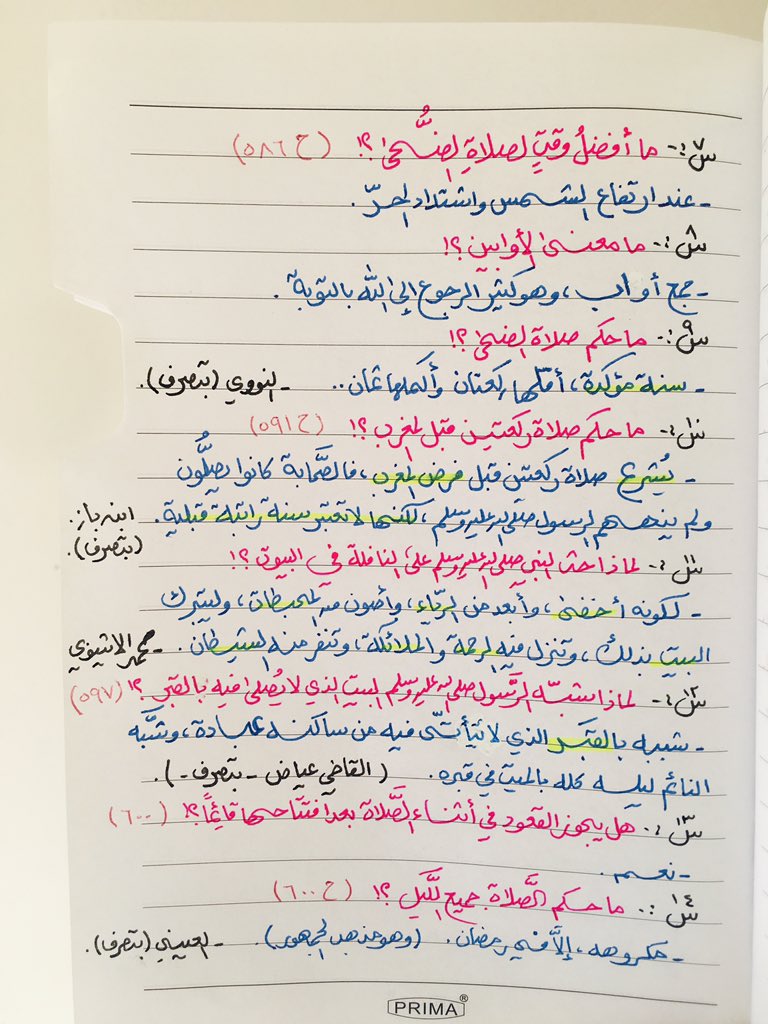 س٧:- ما أفضلُ وقتٍ لصلاةِ الضُّحىٰ؟! (ح ٥٨٦)
- عند ارتفاع الشمس واشتداد الحرّ.
س٨:- ما معنىٰ الأوابين؟!
- جمع أواب، وهو كثير الرجوع إلى الله بالتوبة.
س٩:- ما حكم صلاة الضحىٰ؟!
- سنة مؤكدة، أقلها ركعتان وأكملها ثمان.. - النووي (بتصرف).
س١٠:- ما حكم صلاة ركعتين قبل المغرب؟! (ح ٥٩١)
- يُشرع صلاة ركعتين قبل فرض المغرب، فالصَّحابة كانوا يصلُّون
ولم ينههم الرسول صلى الله عليه وسلم، لكنها لا تعتبر سنة راتبة قبلية. ابن باز. (بتصرف).
س١١:- لماذا حث النبي صلى الله عليه وسلم على النافلة في البيوت؟!
- لكونه أخفىٰ، وأبعد من الرِّياء، وأصون من المحبطات، وليتبرك
البيت بذلك، وتنزل فيه الرحمة والملائكة، وتنفر منه الشيطان. - محمد الاثيوبي
س١٢:- لماذا شبّه الرَّسول صلى الله عليه وسلم البيت الذي لا يُصلىٰ فيه بالقبر؟! (٥٩٧)
- شبهه بالقبر الذي لا يتأتّى فيه من ساكنه عبادة، وشبَّه
النائم ليله كله بالميت في قبره. (القاضي عياض - بتصرف -).
س١٣:- هل يجوز القعود في أثناء الصَّلاة بعد افتتاحها قائِمًا؟! (٦٠٠)
- نعم.
س١٤:- ما حكم الصَّلاة جميع اللَّيل؟! (ح ٦٠٠)
- مكروهه، إلَّا في رمضان. (وهو مذهب الجمهور). - العيني (بتصرف).
PRIMA®